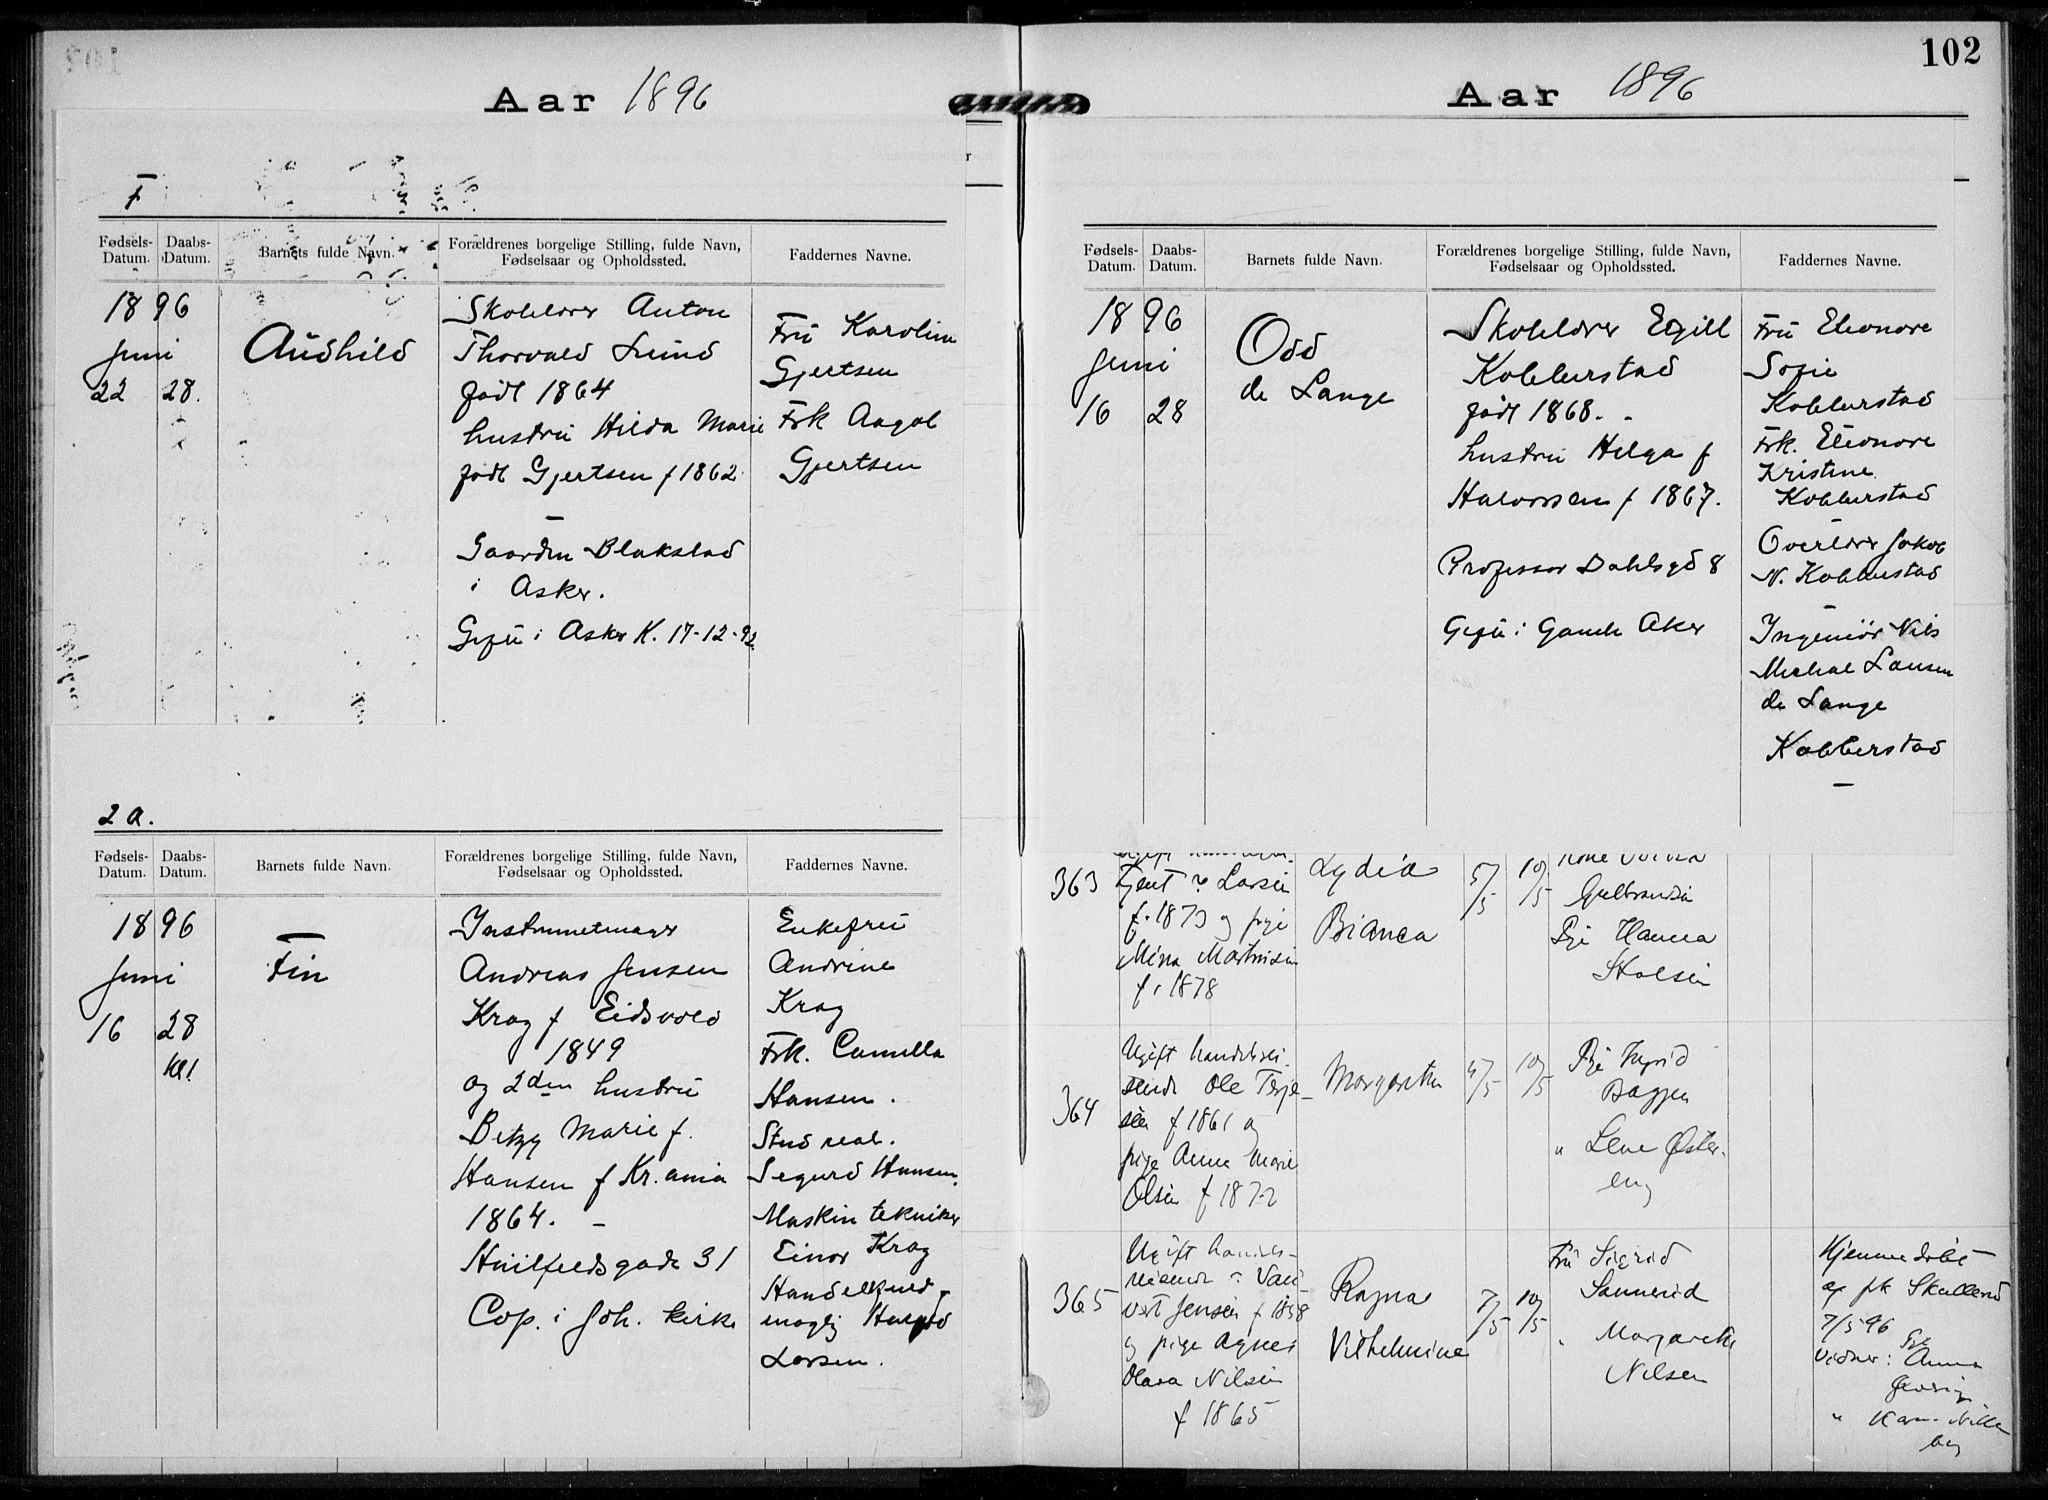 Aar 1896
F
Fødsels-Datum. Daabs-Datum. Barnets fulde Navn. Forældrenes borgelige Stilling, fulde Navn, Fødselsaar og Opholdssted. Faddernes Navne.
1896
Juni
22 28.
Audhild
Anton
Thorvald Lund
født 1864
hustru Hilda Marie
født Gjertsen f 1862
Gaarden Blakstad
i Asker.
Gift i Asker K. 17-12-92
Fru Karoline
Gjertsen
Frk Aagot
Gjertsen
2 a.
Fødsels-Datum. Daabs-Datum. Barnets fulde Navn. Forældrenes borgelige Stilling, fulde Navn, Fødselsaar og Opholdssted. Faddernes Navne.
1896
Juni
16 28
Kl 1.
Fin
Instrumetmager
Andreas Jensen
Krag f Eidsvold
1849
og 2den hustru
Betzy Marie f.
Hansen f Kr.ania
1864. -
Huitfeldsgade 31
Cop. i Joh. kirke
Enkefru
Andrine
Krag
Frk. Camilla
Hansen.
Stud real.
Sigurd Hansen.
Maskintekniker
Einar Krag
Larsen.
102
Aar 1896
Fødsels-Datum. Daabs-Datum. Barnets fulde Navn. Forældrenes borgelige Stilling, fulde Navn, Fødselsaar og Opholdssted. Faddernes Navne.
1896
Juni
16 28
Odd
de Lange
Egill
Kobberstad
født 1868. -
hustru Helga f
Halvorsen f 1867.
Professor Dahlsgd 8
Gift i Gamle Aker
Fru Eleonore
Sofie
Kobberstad
Frk. Eleonore
Kristine
Kobberstad
Overlærer Jakob
N. Kobberstad
Ingeniør Nils
Michal
de Lange
Kobberstad
363
Larsen
f. 1873 og pige
Mina Martinsen
f. 1878
Lydia
Bianca
5/5
10/5
Gulbrandsen
Pge Hanna
364
Ugift handelsrei-
sende Ole Terje-
sen f 1861 og
pige Anna Marie
Olsen f 1872
Margaretha
4/5
10/5
Pge Ingrid
" Lene Øster-
eng
365
Ugift
Jensen f 1858
og pige Agnes
Olava Nilsen
f 1865
Ragna
Vilhelmine
7/5
10/5
Fru Sigrid
Sannerud
" Margarethe
Nilsen
Hjemmedøbt
af frk
7/5 96
Vidner: Pge Anna